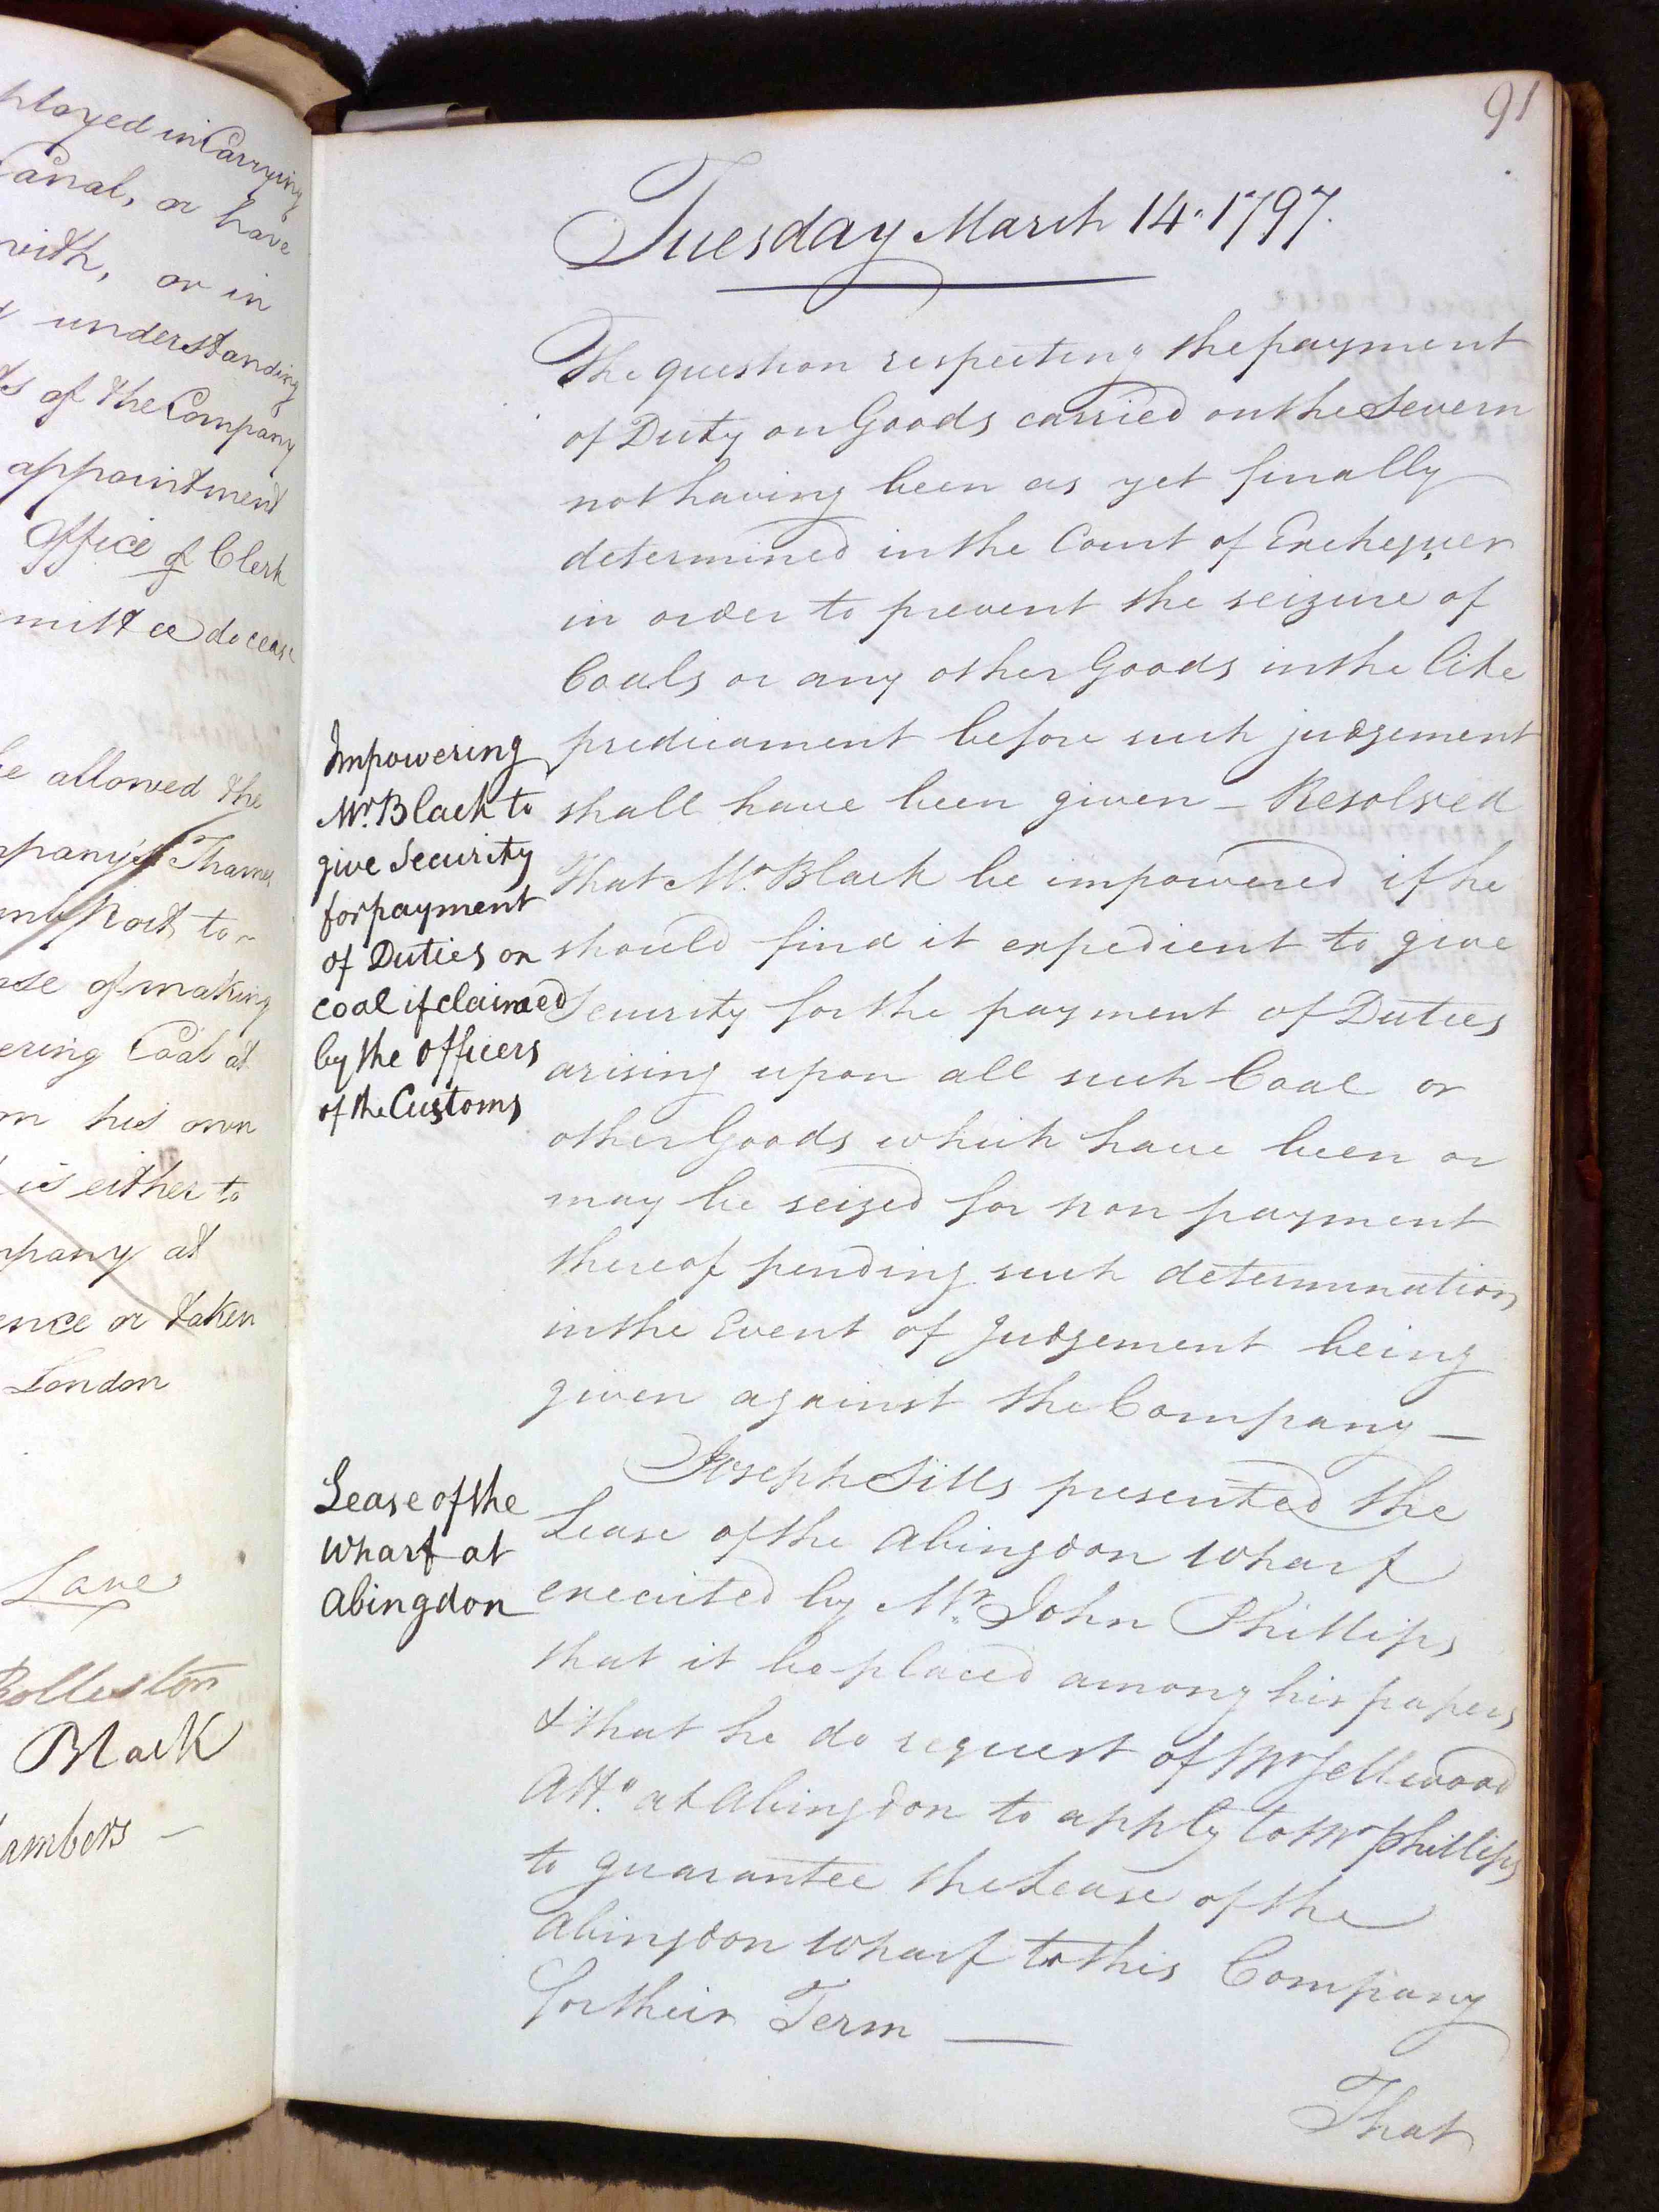 ployed in Carrying
Canal, or have
with, or in
understanding
ts of the Company
appointment
Office of Clerk
mittee do cease
be allowed the
mpany's Thames
and Port to
ase of making
ering Coal at
om his own
is either to
mpany at
ence or taken
London
Lane
Rolleston
Black
ambers —
91
Tuesday March 14. 1797.
The question respecting the payment
of Duty on Goods carried on the Severn
not having been as yet finally
determined in the Court of Exchequer
in order to prevent the seizure of
Coals or any other Goods in the like
predicament before such judgement
shall have been given — Resolved
That Mr. Black be impowered if he
should find it expedient to give
Security for the payment of Duties
arising upon all such Coal or
other Goods which have been or
may be seized for non payment
thereof pending such determination
in the Event of Judgement being
given against the Company —
Impowering
Mr. Black to
give Security
for payment
of Duties on
coal if claimed
by the officers
of the Customs
Joseph Sills presented the
Lease of the Abingdon Wharf
executed by Mr. John Phillips
that it be placed among his papers
& that he do request of Mr Sellwood
Atto. at Abingdon to apply to Mr Phillips
to guarantee the Lease of the
Abingdon Wharf to this Company
for their Term —
Lease of the
Wharf at
Abingdon
That